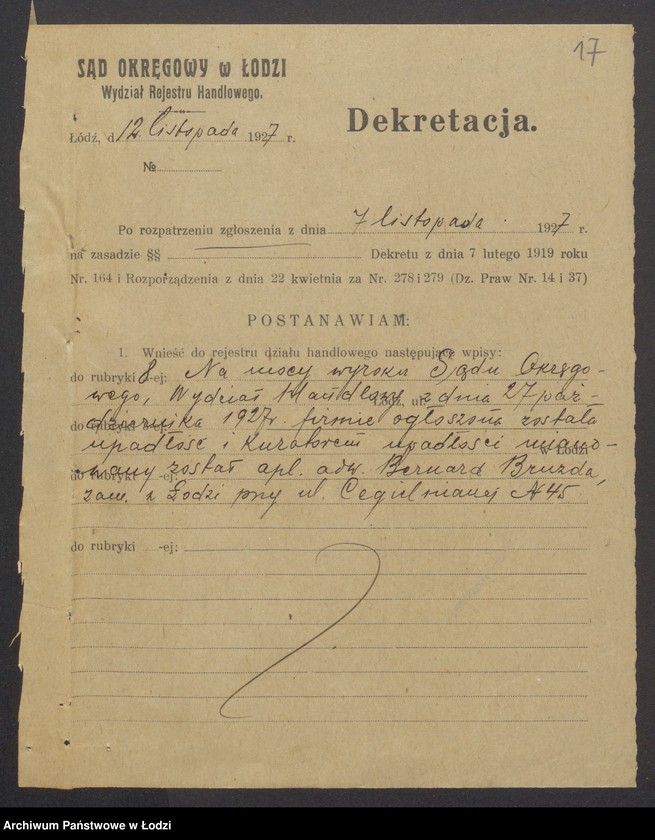 17
SĄD OKRĘGOWY w ŁODZI
Wydział Rejestru Handlowego.
Dekretacja.
Łódź, d. 12 listopada 1927 r.
№
Po rozpatrzeniu zgłoszenia z dnia 7 listopada 1927 r.
na zasadzie §§ Dekretu z dnia 7 lutego 1919 roku
Nr. 164 i Rozporządzenia z dnia 22 kwietnia za Nr. 278 i 279 (Dz. Praw Nr. 14 i 37)
POSTANAWIAM:
1. Wnieść do rejestru działu handlowego następujące wpisy:
do rubryki 8-ej: Na mocy wyroku Sądu Okręgo-
wego, Wydział Handlowy z dnia 27 paź-
Łódź, ul.
dziernika 1927r. firmie ogłoszona została
do rubryki
upadłość i kuratorem upadłości miano-
w Łodzi
wany został apl. adw. Bernard Bruzda,
do rubryki -ej:
zam. w Łodzi przy ul. Cegielnianej № 45
do rubryki -ej:
Archiwum Państwowe w Łodzi